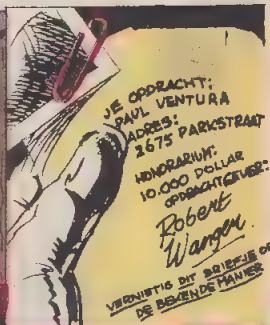 JE OPDRACHT:
PAUL VENTURA
ADRES:
2675 PARKSTRAAT
HONORARIUM:
10.000 DOLLAR
OPDRACHTGEVER:
Robert
Wangen.
VERNIETIG DIT BRIEFJE OP
DE BEKENDE MANIER